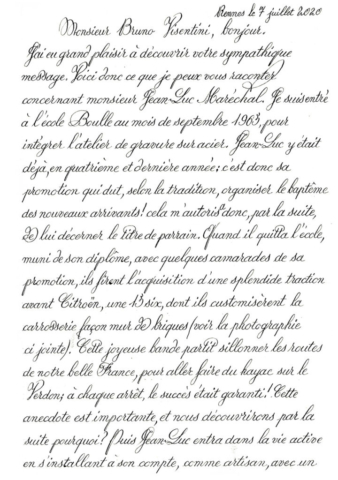 Rennes le 7 juillet 2020
Monsieur Bruno Visentini, bonjour.
J'ai eu grand plaisir à découvrir votre sympathique
message. Voici donc ce que je peux vous raconter
concernant monsieur Jean-Luc Maréchal. Je suis entré
à l'école Boulle au mois de septembre 1963, pour
intégrer l'atelier de gravure sur acier. Jean-Luc y était
déjà, en quatrième et dernière année; c'est donc sa
promotion qui dut, selon la tradition, organiser le baptême
des nouveaux arrivants! cela m'autorise donc, par la suite,
de lui décerner le titre de parrain. Quand il quitta l'école,
muni de son diplôme, avec quelques camarades de sa
promotion, ils firent l'acquisition d'une splendide traction
avant Citroën, une 15 six, dont ils customisèrent la
carrosserie façon mur de briques (voir la photographie
ci jointe). Cette joyeuse bande partit sillonner les routes
de notre belle France, pour aller faire du kayac sur le
Verdon; à chaque arrêt, le succès était garanti! Cette
anecdote est importante, et nous découvrirons par la
suite pourquoi? Puis Jean-Luc entra dans la vie active
en s'installant à son compte, comme artisan, avec un